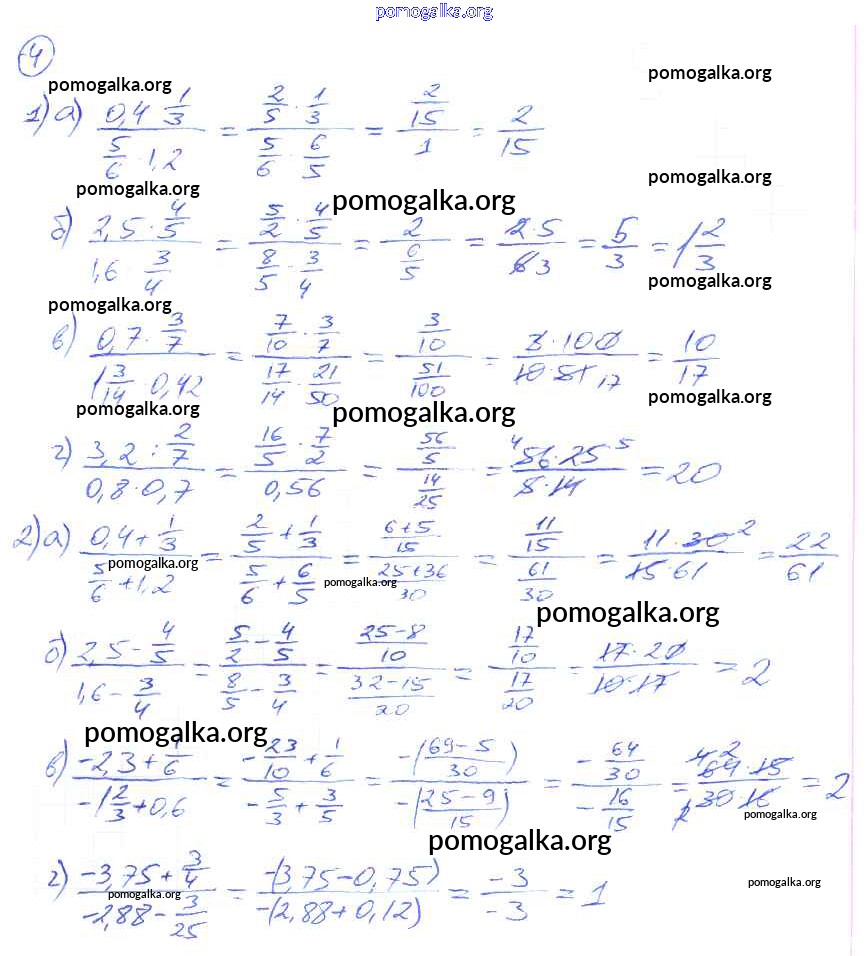 pomogalka.org
4
pomogalka.org pomogalka.org
1) а) (0,4 · 1/3)/(5/6 · 1,2) = (2/5 · 1/3)/(5/6 · 6/5) = (2/15)/1 = 2/15
pomogalka.org pomogalka.org
pomogalka.org
б) (2,5 · 4/5)/(1,6 · 3/4) = (5/2 · 4/5)/(8/5 · 3/4) = 2/(6/5) = (2·5)/(6 3) = 5/3 = 1 2/3
pomogalka.org
pomogalka.org
в) (0,7 · 3/7)/(1 3/14 · 0,42) = (7/10 · 3/7)/(17/14 · 21/50) = (3/10)/(51/100) = (3·100)/(10·51 17) = 10/17
pomogalka.org pomogalka.org pomogalka.org
г) (3,2 : 2/7)/(0,8·0,7) = (16/5 · 7/2)/(0,56) = (56/5)/(14/25) = (4 56·25 5)/(5·14) = 20
2) а) (0,4 + 1/3)/(5/6 + 1,2) = (2/5 + 1/3)/(5/6 + 6/5) = ((6+5)/15)/((25+36)/30) = (11/15)/(61/30) = (11·30 2)/(15·61) = 22/61
pomogalka.org pomogalka.org
pomogalka.org
б) (2,5 − 4/5)/(1,6 − 3/4) = (5/2 − 4/5)/(8/5 − 3/4) = ((25−8)/10)/((32−15)/20) = (17/10)/(17/20) = (17·20)/(10·17) = 2
pomogalka.org
в) (−2,3 + 1/6)/(−1 2/3 + 0,6) = (−23/10 + 1/6)/(−5/3 + 3/5) = (−((69−5)/30))/(−((25−9)/15)) = (−64/30)/(−16/15) = (4 2 64·15)/(2 30·16) = 2
pomogalka.org
pomogalka.org
г) (−3,75 + 3/4)/(−2,88 − 3/25) = (−(3,75−0,75))/(−(2,88+0,12)) = (−3)/(−3) = 1
pomogalka.org pomogalka.org